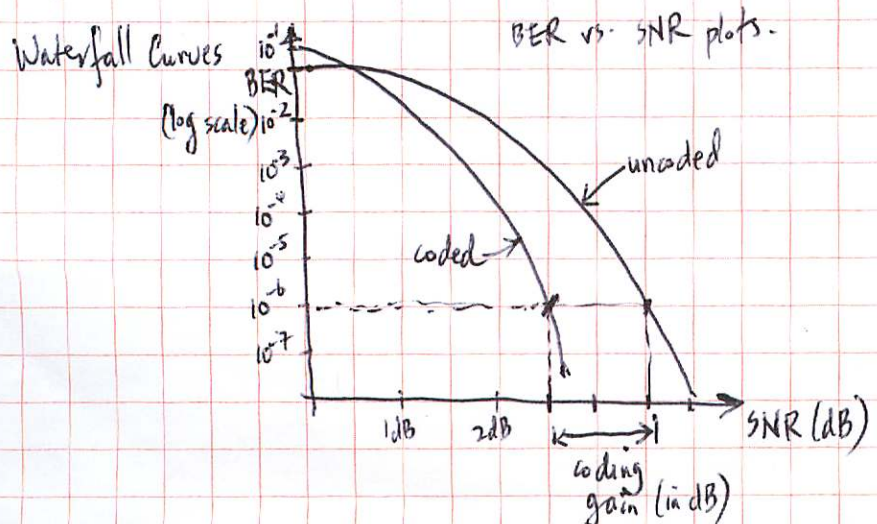 Waterfall Curves
BER vs. SNR plots.
10⁻¹
BER
(log scale) 10⁻²
10⁻³
10⁻⁴
10⁻⁵
10⁻⁶
10⁻⁷
uncoded
coded
1dB 2dB
SNR (dB)
coding
gain (in dB)